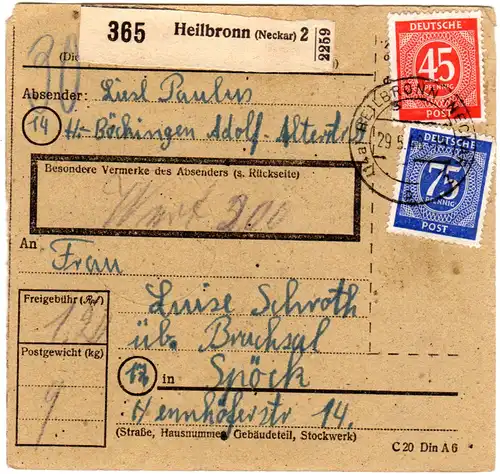 365 Heilbronn (Neckar) 2
2259
30
(Die
Absender: Liesl Paulus
14 H.-Böckingen Adolf-Alter
Besondere Vermerke des Absenders (s. Rückseite)
Wert 200
An
Frau
Luise Schroth
üb. Bruchsal
17 in Spöck
Hennhöferstr 14.
(Straße, Hausnummer, Gebäudeteil, Stockwerk)
Freigebühr (Rpf)
120
Postgewicht (kg)
9
C 20 Din A 6
DEUTSCHE
45
PFENNIG
POST
DEUTSCHE
75
PFENNIG
POST
(14a) HEILBRONN (NECKAR)
29.5.